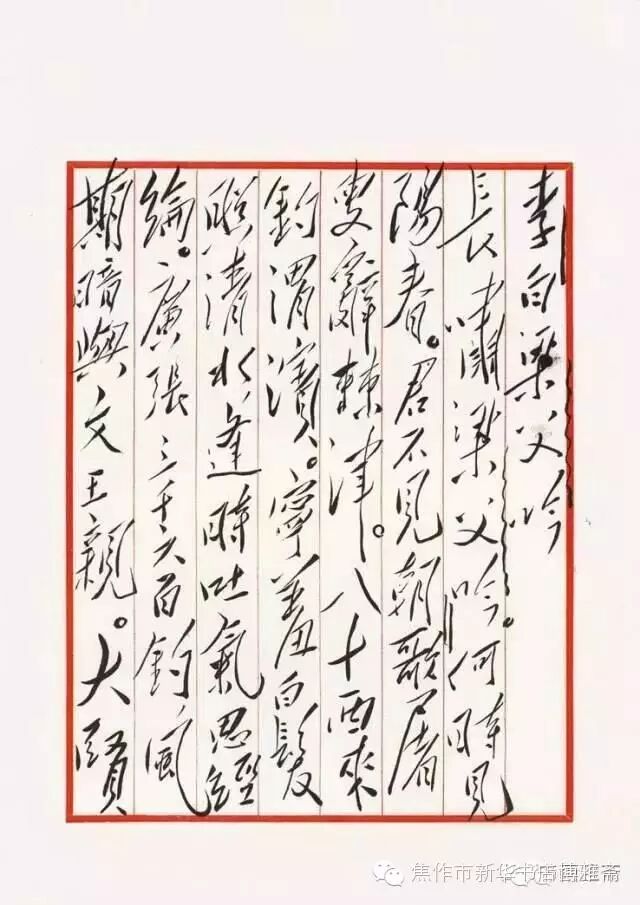 李白梁父吟
長嘯梁父吟。何時見
陽春。君不見朝歌屠
叟辭棘津。八十西來
釣渭濱。寧羞白髮
照清水逢時吐氣思經
綸。廣張三千六百釣風
期暗與文王親。大賢
焦作市新华书店博雅斋